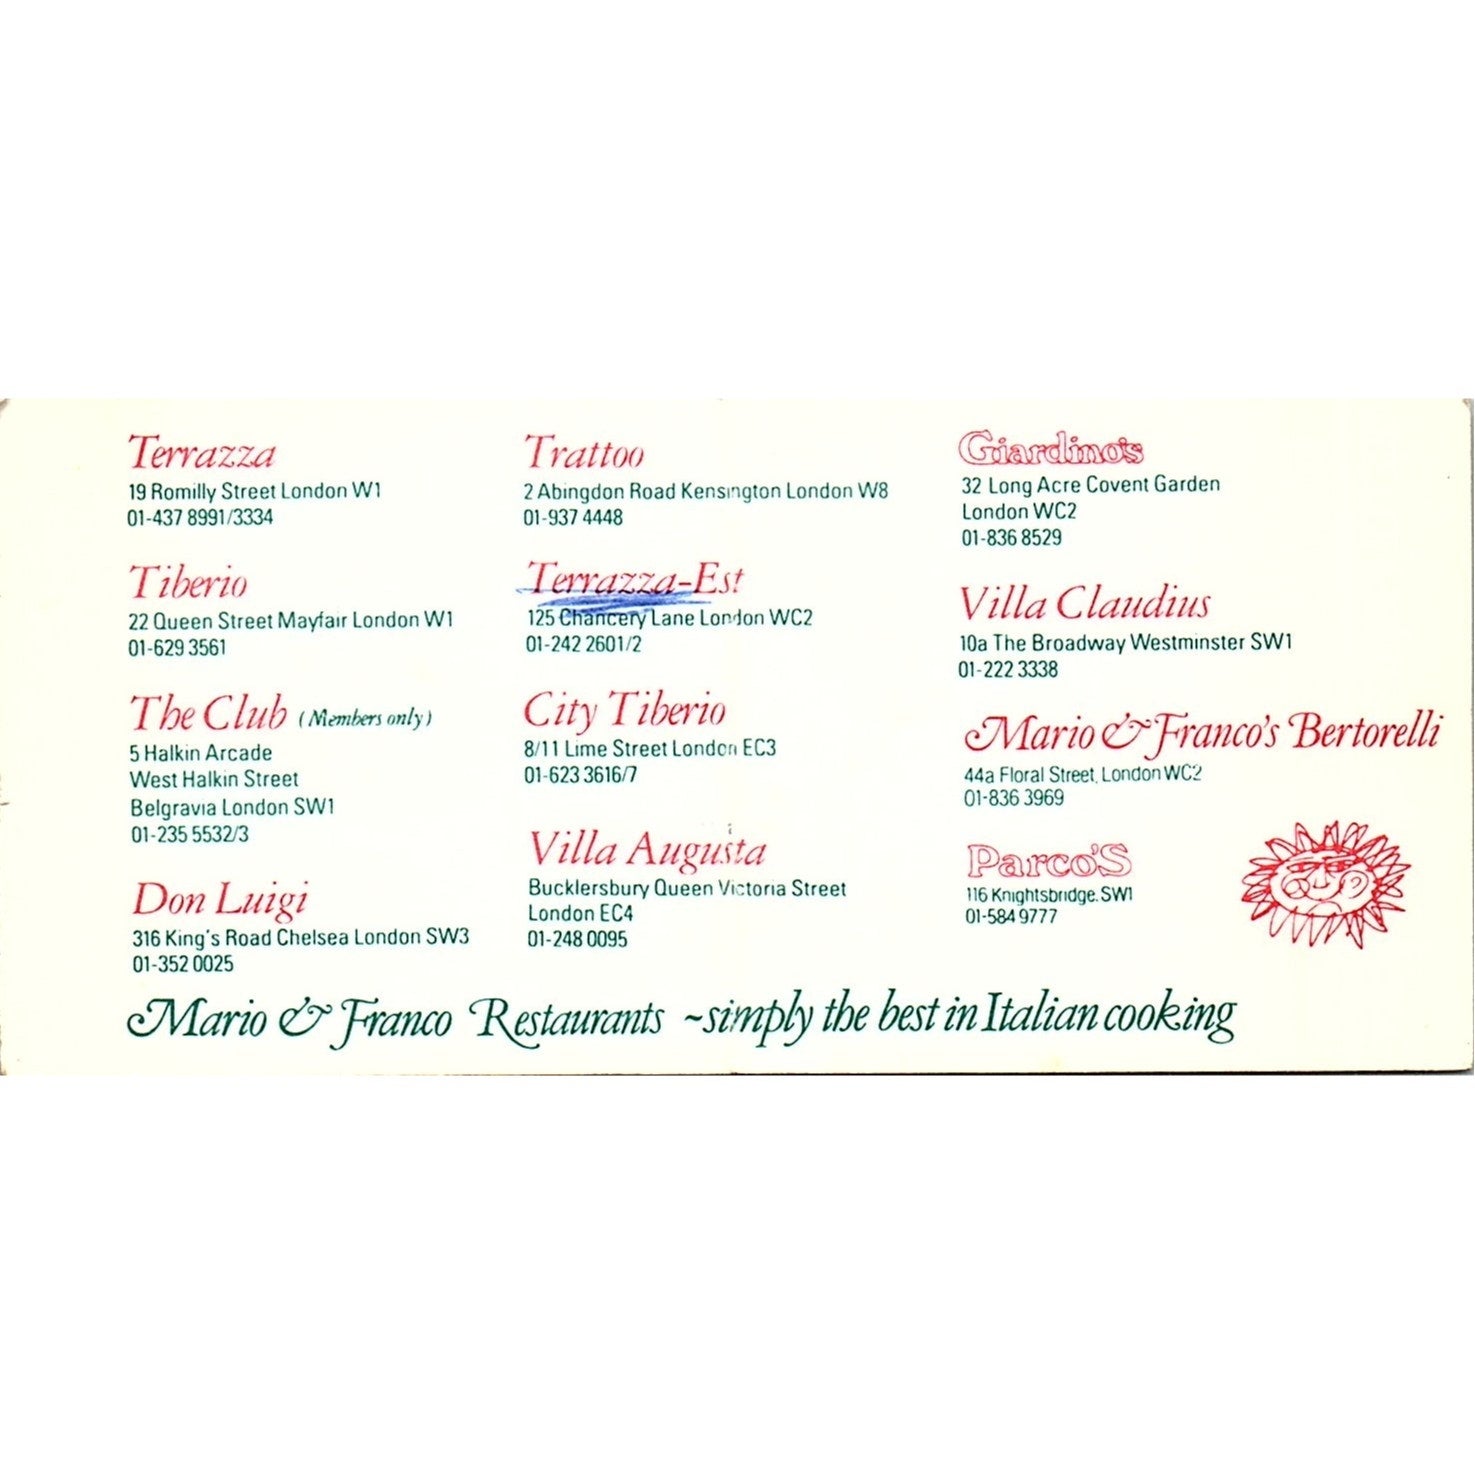 Terrazza
19 Romilly Street London W1
01-437 8991/3334
Tiberio
22 Queen Street Mayfair London W1
01-629 3561
The Club (Members only)
5 Halkin Arcade
West Halkin Street
Belgravia London SW1
01-235 5532/3
Don Luigi
316 King's Road Chelsea London SW3
01-352 0025
Trattoo
2 Abingdon Road Kensington London W8
01-937 4448
Terrazza-Est
125 Chancery Lane London WC2
01-242 2601/2
City Tiberio
8/11 Lime Street London EC3
01-623 3616/7
Villa Augusta
Bucklersbury Queen Victoria Street
London EC4
01-248 0095
Giardino's
32 Long Acre Covent Garden
London WC2
01-836 8529
Villa Claudius
10a The Broadway Westminster SW1
01-222 3338
Mario & Franco's Bertorelli
44a Floral Street, London WC2
01-836 3969
Parco'S
116 Knightsbridge. SW1
01-584 9777
Mario & Franco Restaurants ~simply the best in Italian cooking